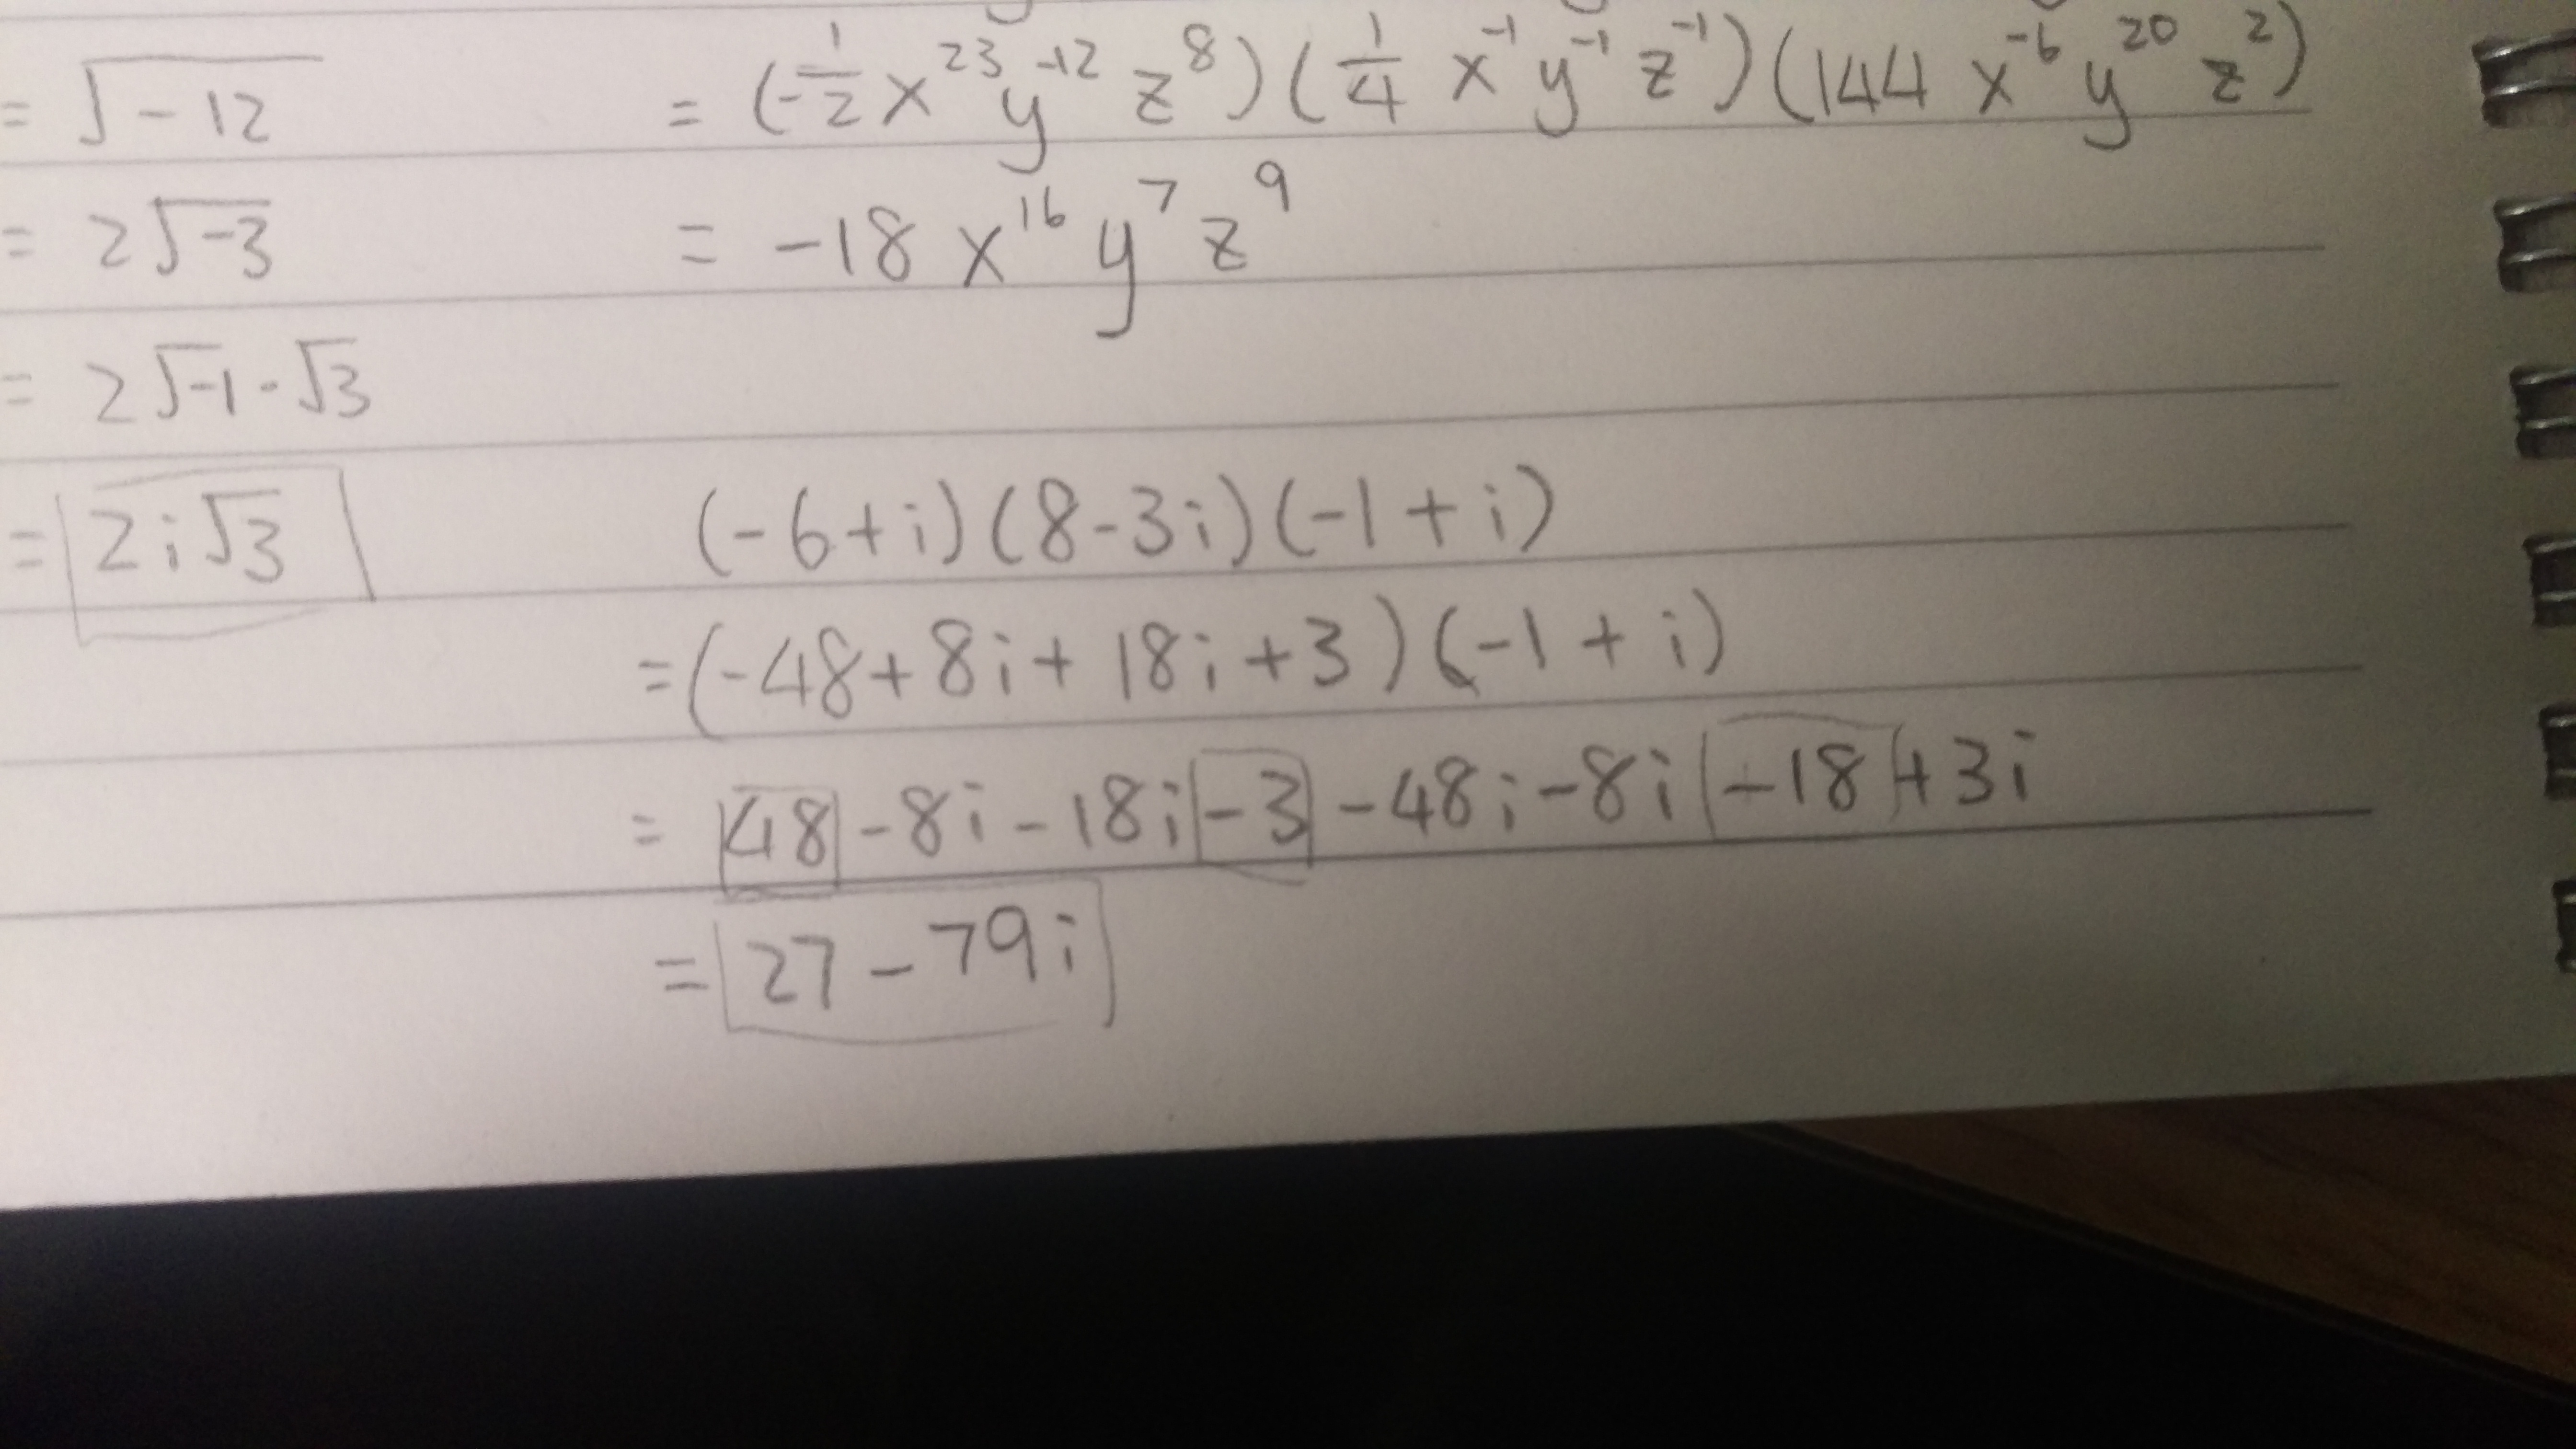 = √-12
= 2√-3
= 2√-1 · √3
= 2i√3
= (-1/2 x^23 y^-12 z^8)(1/4 x^-1 y^-1 z^-1)(144 x^-6 y^20 z^2)
= -18 x^16 y^7 z^9
(-6+i)(8-3i)(-1+i)
=(-48+8i+18i+3)(-1+i)
= 48-8i-18i-3-48i-8i-18+3i
= 27-79i